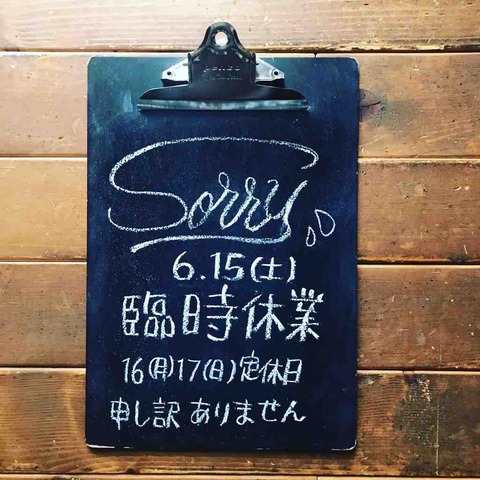 Sorry
6.15(土)
臨時休業
16(月)17(日)定休日
申し訳ありません